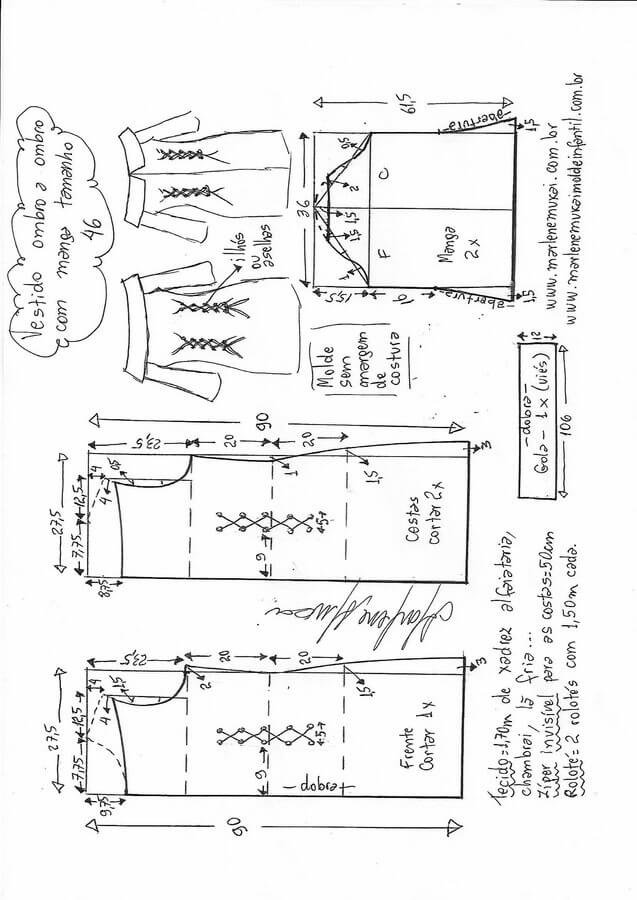 Vestido ombro a ombro
com manga tamanho
46
ilhós
ou
aselhas
Molde
sem
margem
de
costura
61,5
36
15,5
9
0,5
2
1,5
1,5
1
C
F
Manga
2x
abertura
abertura
1,5
1,5
www.marlenemukai.com.br
www.marlenemukaimoldeinfantil.com.br
12
-dobra-
Gola - 1x (viés)
106
90
23,5
20
20
27,5
7,75
12,5
4
4
0,5
8,75
1
1,5
3
9
4,5
Costas
cortar 2x
Marlene Mukai
23,5
20
20
27,5
7,75
12,5
4
4
1,5
9,75
2
1,5
3
9
4,5
-dobra-
Frente
Cortar 1x
90
Tecido=1,70m de xadrez alfaiataria,
chambrai, lã fria...
Zíper invisível para as costas=50cm
Roloté=2 rolotés com 1,50m cada.